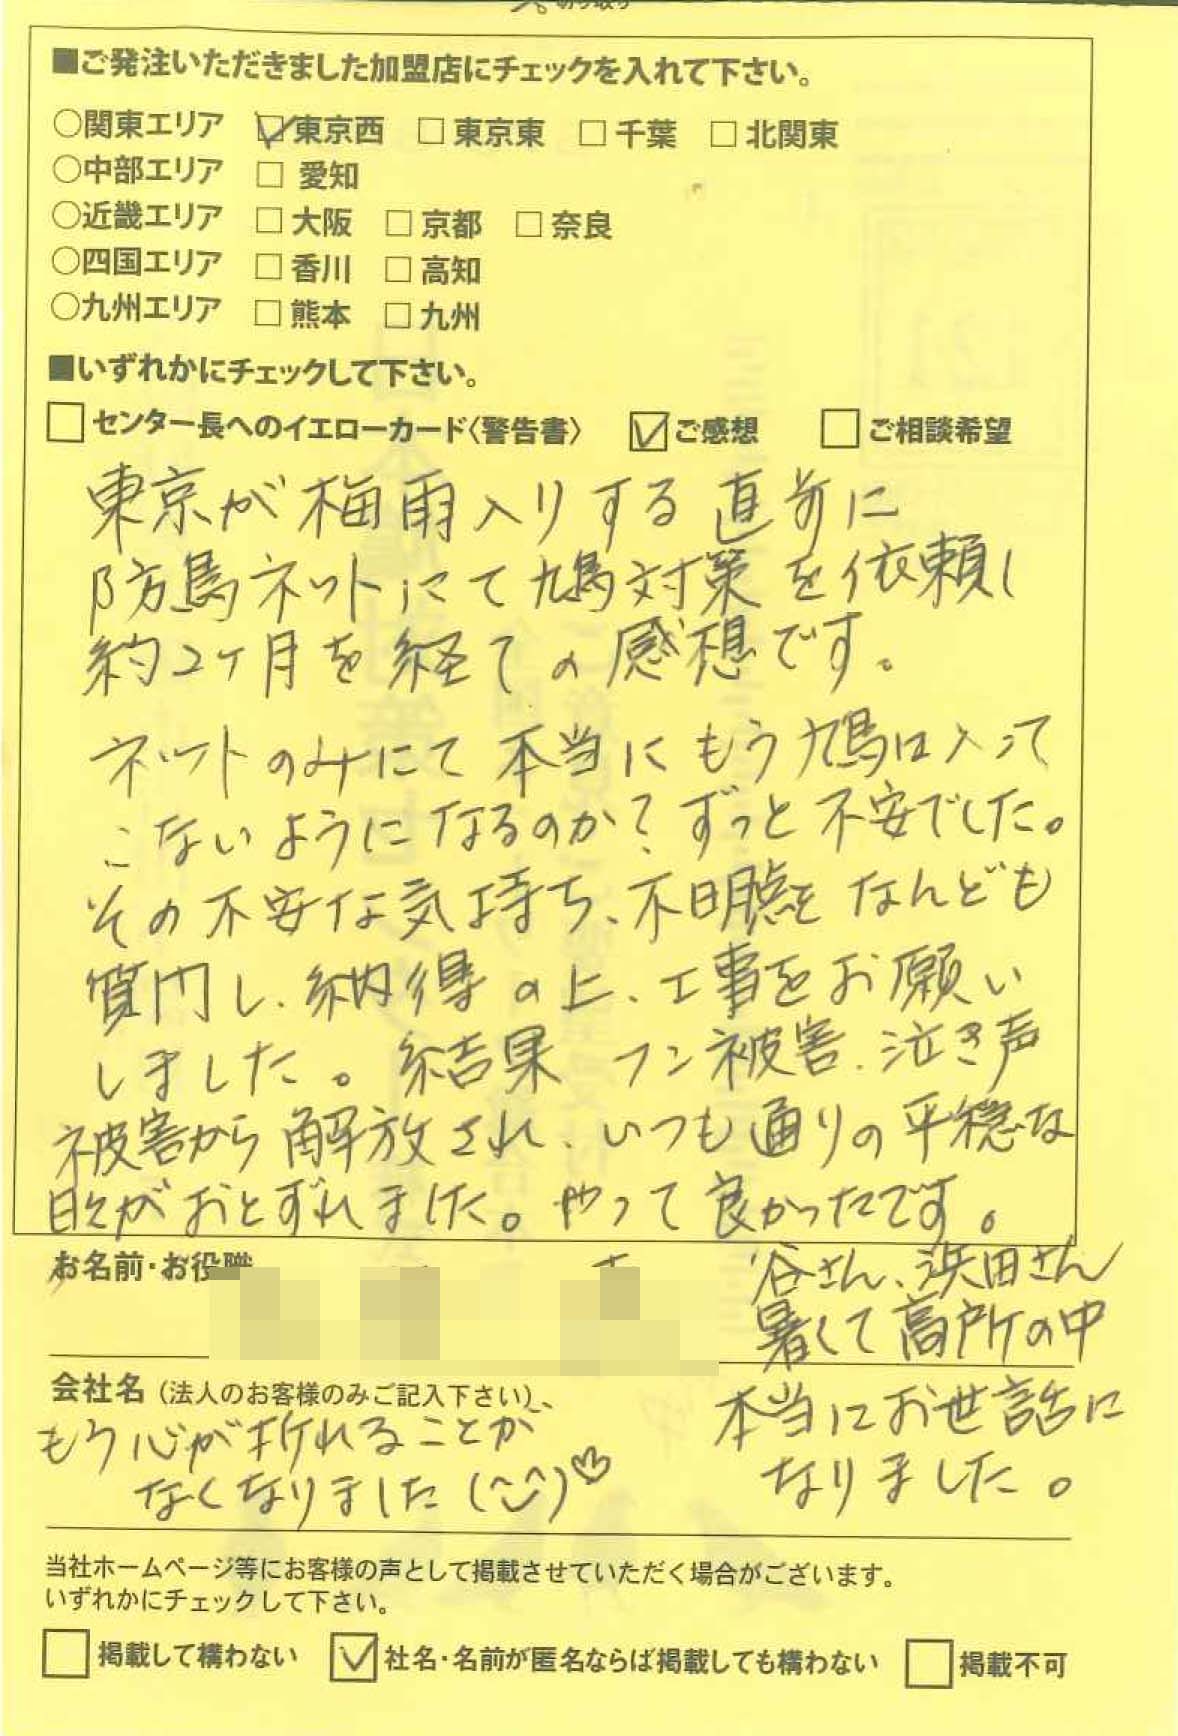 ■ご発注いただきました加盟店にチェックを入れて下さい。
○関東エリア ☑東京西 □東京東 □千葉 □北関東
○中部エリア □愛知
○近畿エリア □大阪 □京都 □奈良
○四国エリア □香川 □高知
○九州エリア □熊本 □九州
■いずれかにチェックして下さい。
□センター長へのイエローカード〈警告書〉 ☑ご感想 □ご相談希望
東京が梅雨入りする直前に
防鳥ネットにて鳩対策を依頼し
約2ヶ月を経ての感想です。
ネットのみにて本当にもう鳩は入って
こないようになるのか?ずっと不安でした。
その不安な気持ち、不明点をなんども
質問し、納得の上、工事をお願い
しました。結果 フン被害、泣き声
被害から解放され、いつも通りの平穏な
日々がおとずれました。やって良かったです。
お名前・お役職
谷さん、浜田さん
暑くて高所の中
本当にお世話に
なりました。
会社名(法人のお客様のみご記入下さい)
もう心が折れることが
なくなりました(^‿^)♡
当社ホームページ等にお客様の声として掲載させていただく場合がございます。
いずれかにチェックして下さい。
□掲載して構わない ☑社名・名前が匿名ならば掲載しても構わない □掲載不可